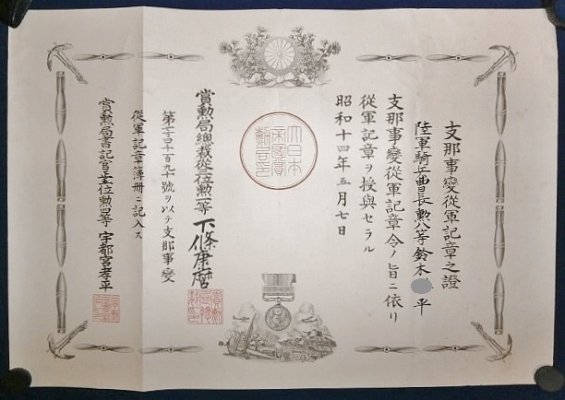 支那事變從軍記章之證
陸軍騎兵曹長勲八等鈴木平
支那事變從軍記章令ノ旨ニ依リ
從軍記章ヲ授與セラル
昭和十四年五月七日
大日本
帝國賞
勲局印
賞勲局總裁從三位勲一等下條康麿
第號ヲ以テ支那事變
從軍記章簿冊ニ記入ス
賞勲局書記官位勲四等宇都宮孝平